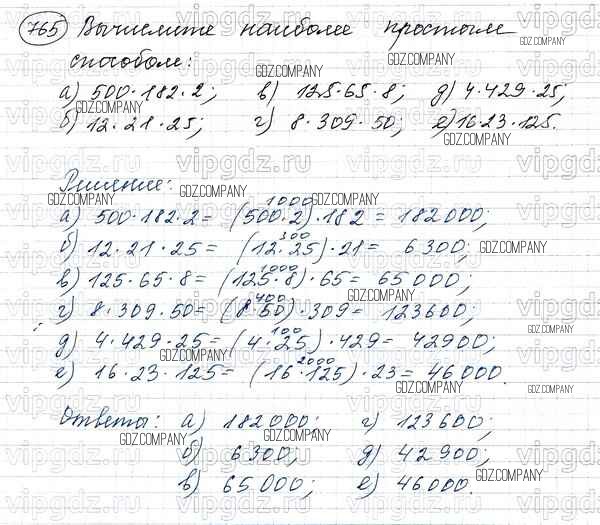 765 Вычислите наиболее простым
способом:
а) 500·182·2; в) 125·65·8; д) 4·429·25;
б) 12·21·25; г) 8·309·50; е) 16·23·125.
Решение:
а) 500·182·2 = (500·2)·182 = 182000;
1000
б) 12·21·25 = (12·25)·21 = 6300;
300
в) 125·65·8 = (125·8)·65 = 65000;
1000
г) 8·309·50 = (8·50)·309 = 123600;
400
д) 4·429·25 = (4·25)·429 = 42900;
100
е) 16·23·125 = (16·125)·23 = 46000.
2000
Ответы: а) 182000; г) 123600;
б) 6300; д) 42900;
в) 65000; е) 46000.
vipgdz.ru
GDZ.COMPANY